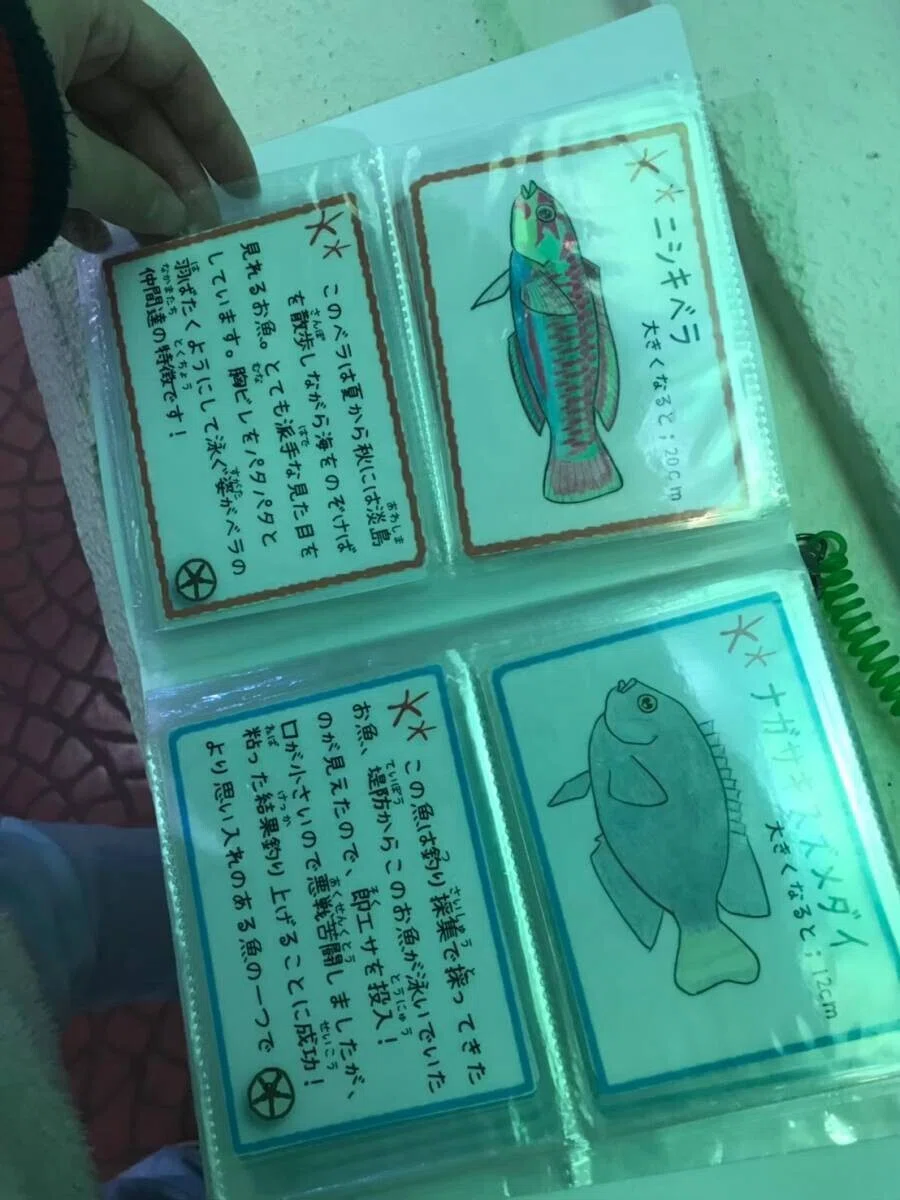 ニシキベラ
大きくなると;20cm
このベラは夏から秋には淡島
を散歩しながら海をのぞけば
見れるお魚。とても派手な見た目を
しています。胸ビレをパタパタと
羽ばたくようにして泳ぐ姿がベラの
仲間達の特徴です!
ナガサキスズメダイ
大きくなると;12cm
この魚は釣り採集で採ってきた
お魚、堤防からこのお魚が泳いでいた
のが見えたので、即エサを投入!
口が小さいので悪戦苦闘しましたが、
粘った結果釣り上げることに成功!
より思い入れのある魚の一つで